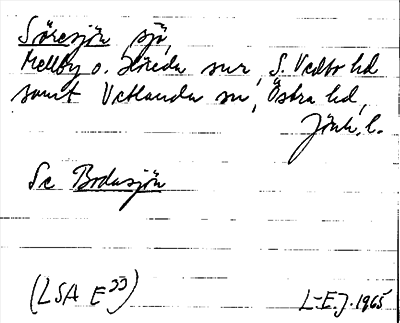 Söresjön sjö,
Mellby o. Hjreda snr, S. Vedbo hd
samt Vetlanda sn, Östra hd,
Jönk. l.
Se Bodasjön
(LSA E 55)
L-E.J. 1965